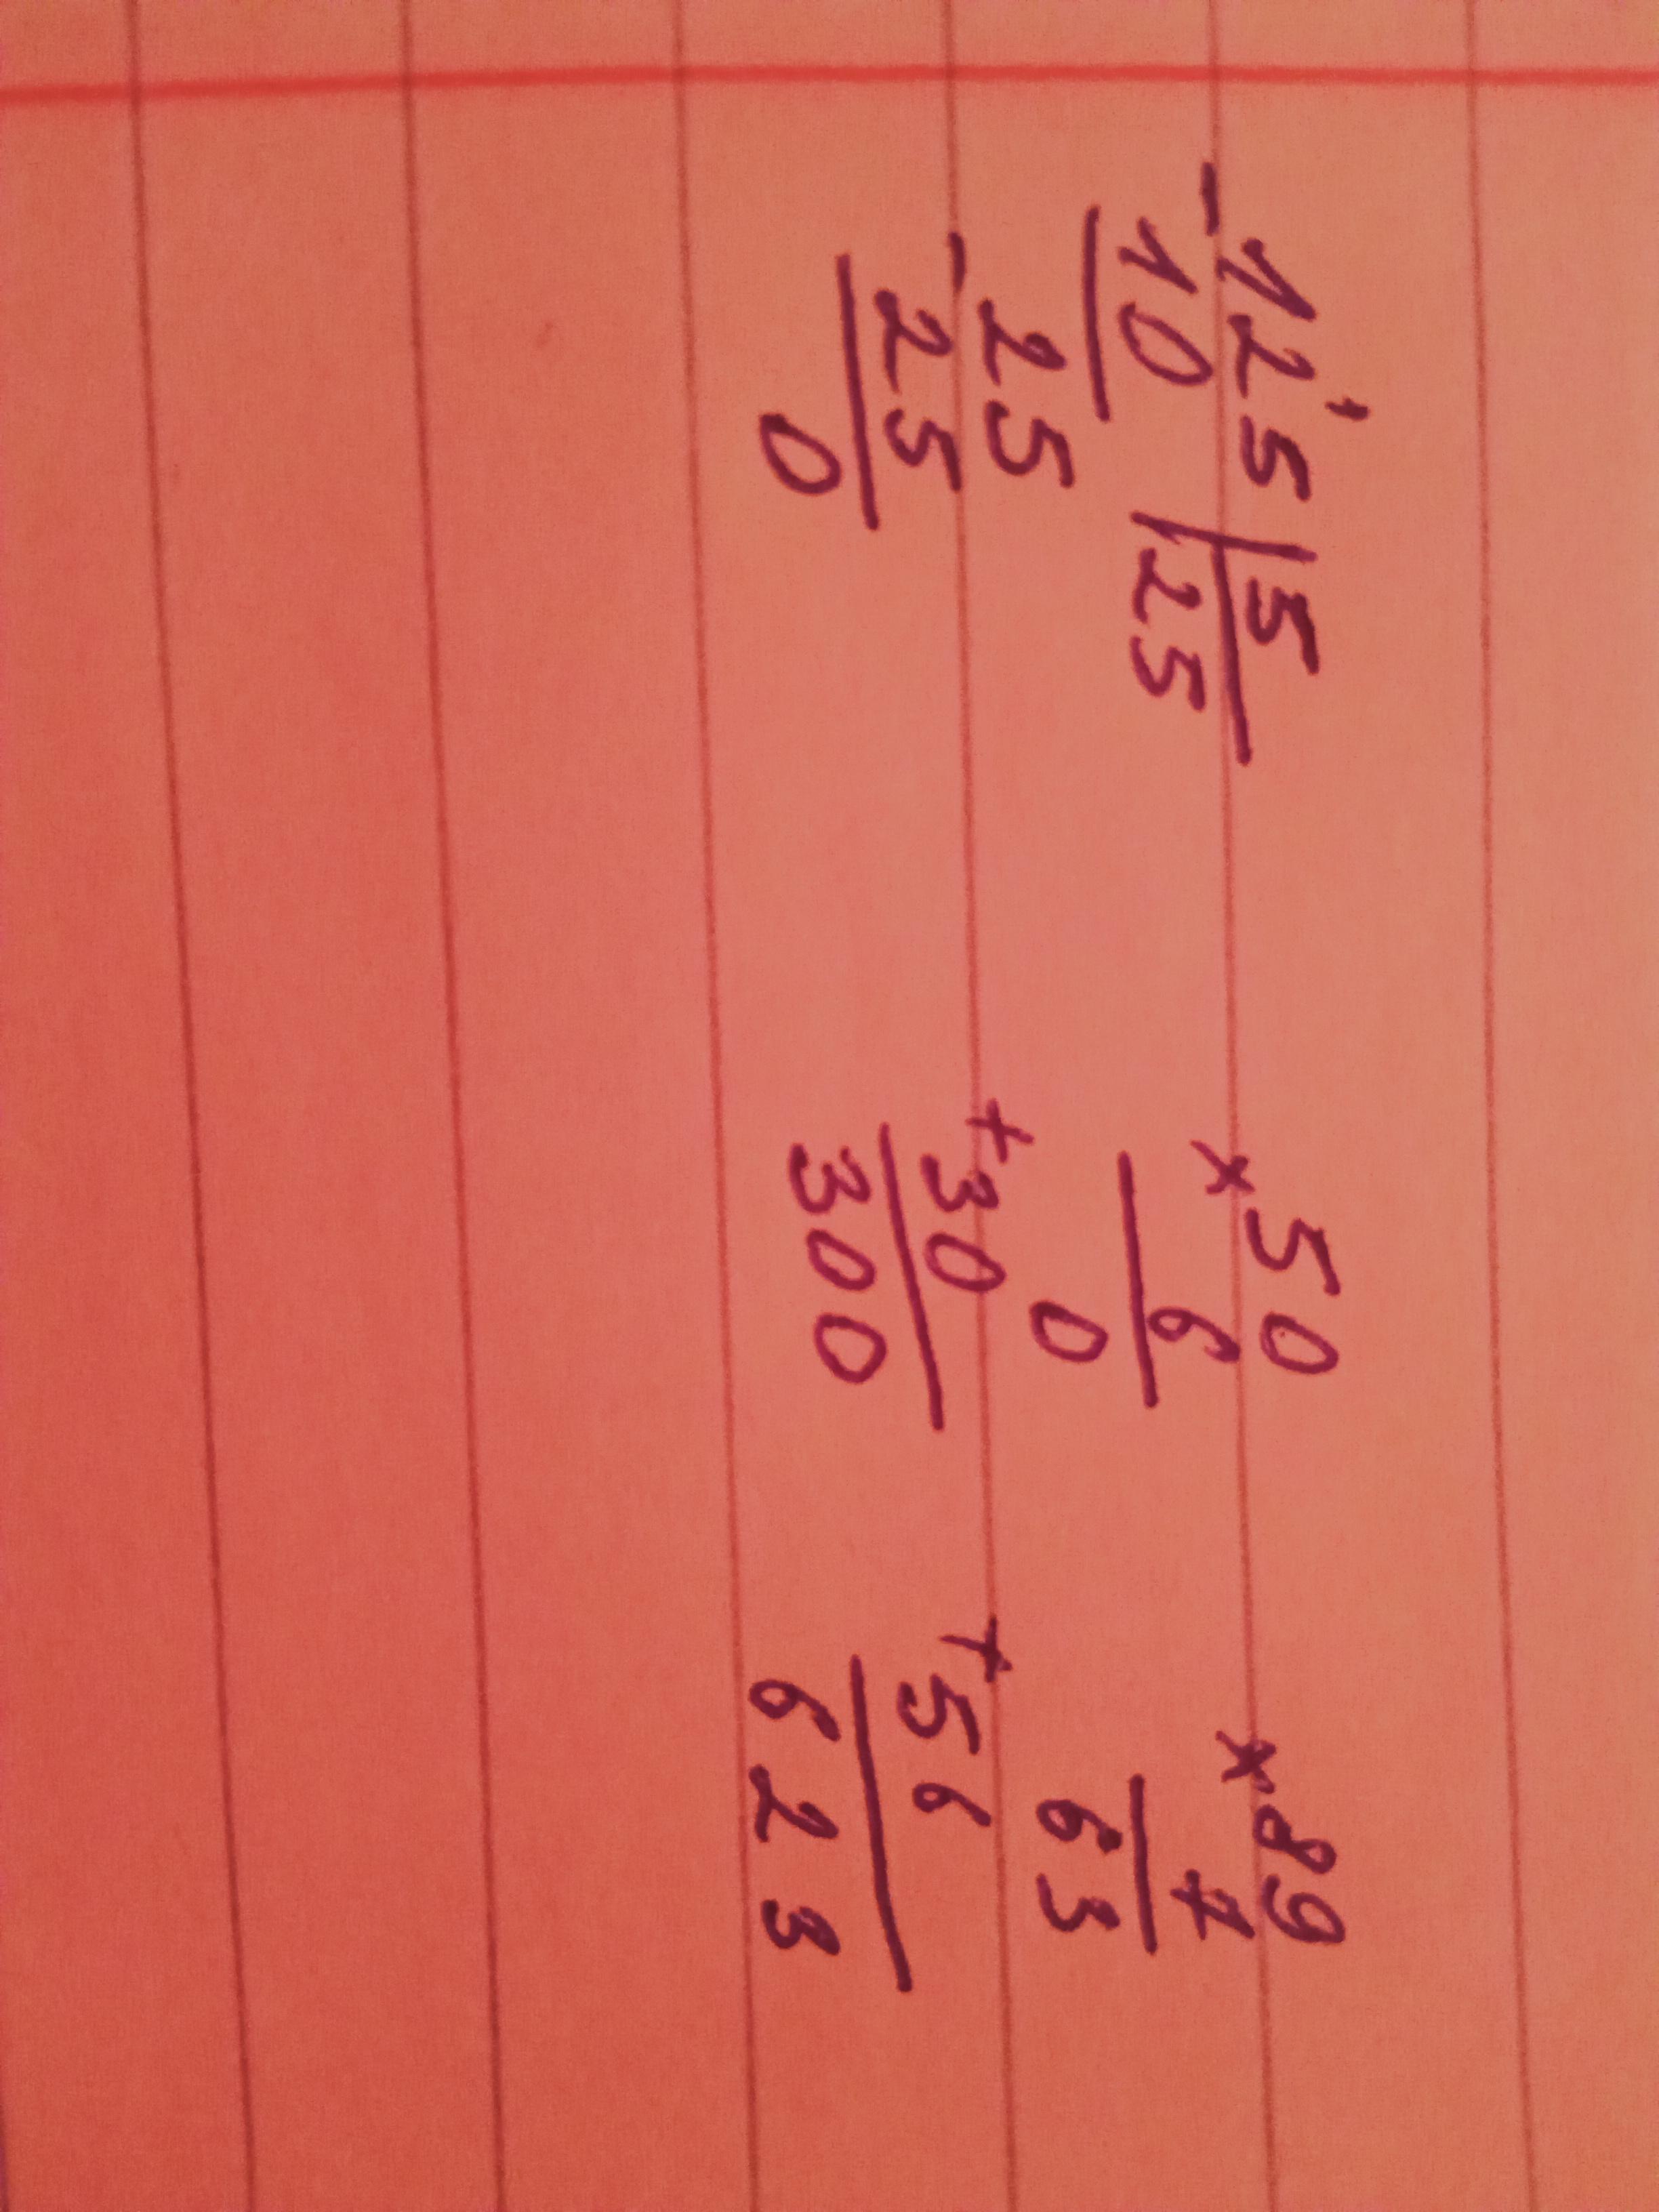 -12'5 | 5
10 | 25
-25
25
0
×50
6
0
+30
300
×89
7
63
+56
623